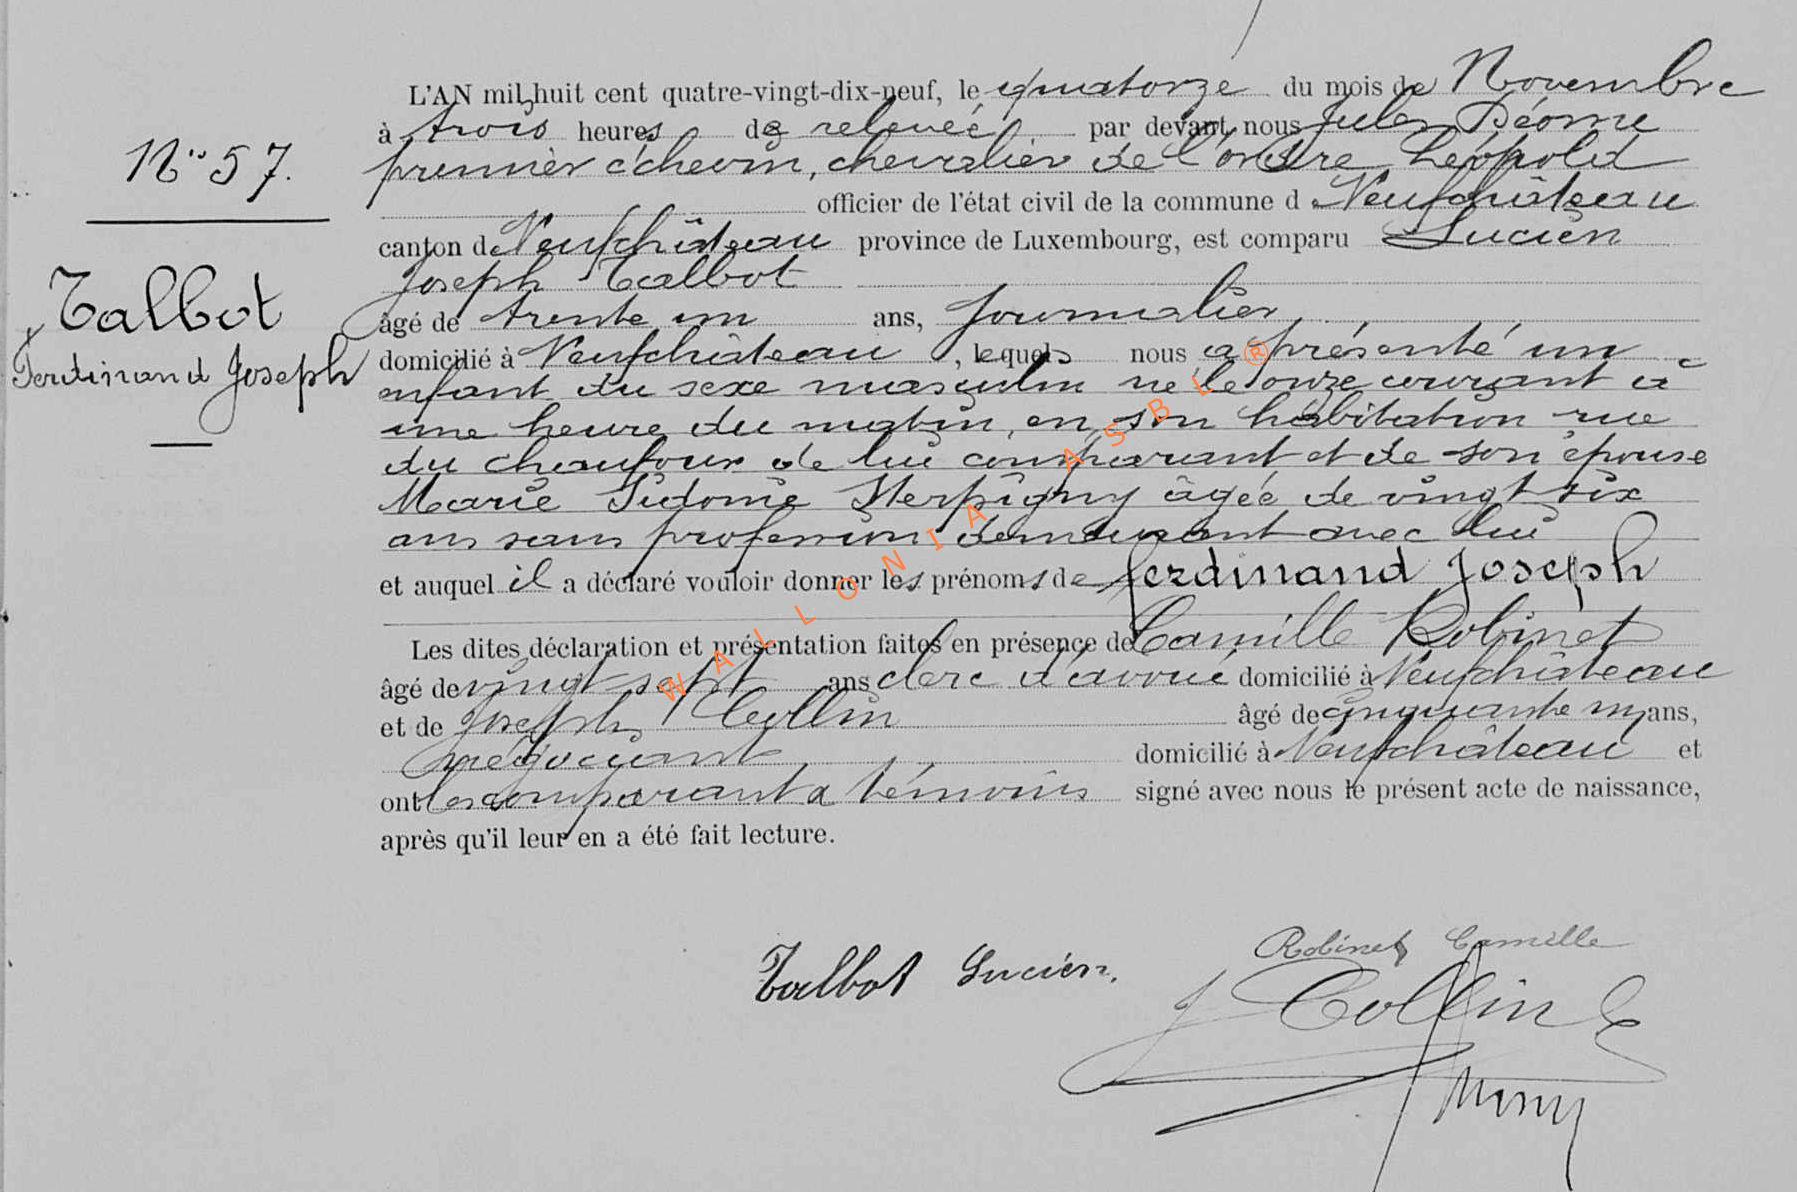 L'AN mil huit cent quatre-vingt-dix-neuf, le quatorze du mois de Novembre
à trois heures de relevée par devant nous Jules
premier échevin, chevalier de l'ordre Léopold
officier de l'état civil de la commune d Neufchâteau
canton de Neufchâteau province de Luxembourg, est comparu Lucien
Joseph Talbot
âgé de trente un ans, Journalier
domicilié à Neufchâteau, lequel nous a présenté un
enfant du sexe masculin né le onze courant à
une heure du matin, en son habitation rue
du chaufour de lui comparant et de son épouse
Marie Sidonie Herpigny âgée de vingt six
ans sans profession demeurant avec lui
et auquel il a déclaré vouloir donner les prénoms de Ferdinand Joseph
Les dites déclaration et présentation faites en présence de Camille Robinet
âgé de vingt sept ans clerc d'avoué domicilié à Neufchâteau
et de Joseph Collin âgé de cinquante un ans,
négociant domicilié à Neufchâteau et
ont les comparant & témoins signé avec nous le présent acte de naissance,
après qu'il leur en a été fait lecture.
N° 57.
Talbot
Ferdinand Joseph
Talbot Lucien.
Robinet Camille
J Collin
WALLONIA ASBL ®